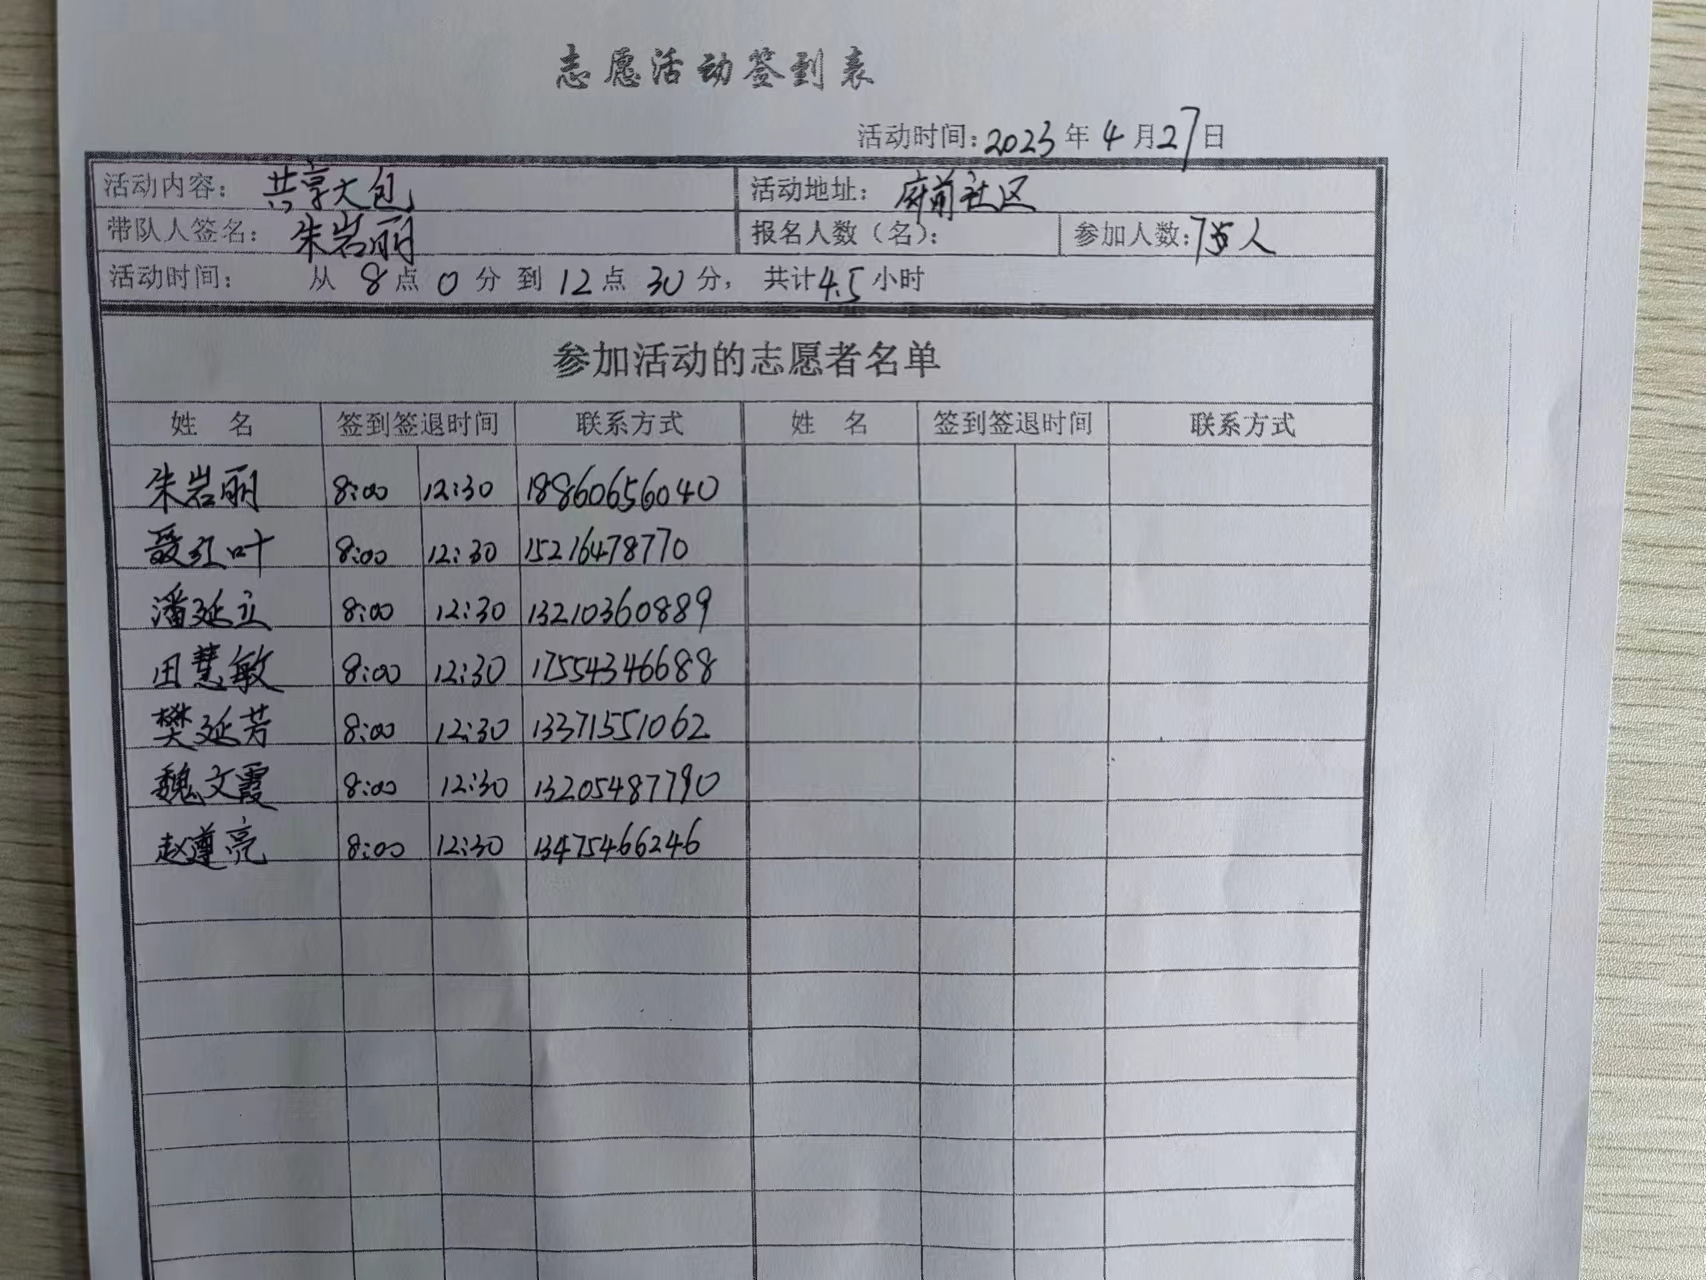 志愿活动签到表
活动时间：2023年4月27日
活动内容： 共享大包 活动地址： 府前社区
带队人签名： 朱岩丽 报名人数（名）： 参加人数：7人
活动时间： 从 8点 0分 到 12点 30分， 共计4.5小时
参加活动的志愿者名单
姓 名 签到签退时间 联系方式 姓 名 签到签退时间 联系方式
朱岩丽 8:00 12:30 18860656040
聂红叶 8:00 12:30 15216478770
潘延立 8:00 12:30 13210360889
田慧敏 8:00 12:30 17554346688
樊延芳 8:00 12:30 13371551062
魏文霞 8:00 12:30 13205487790
赵遵亮 8:00 12:30 13475466246